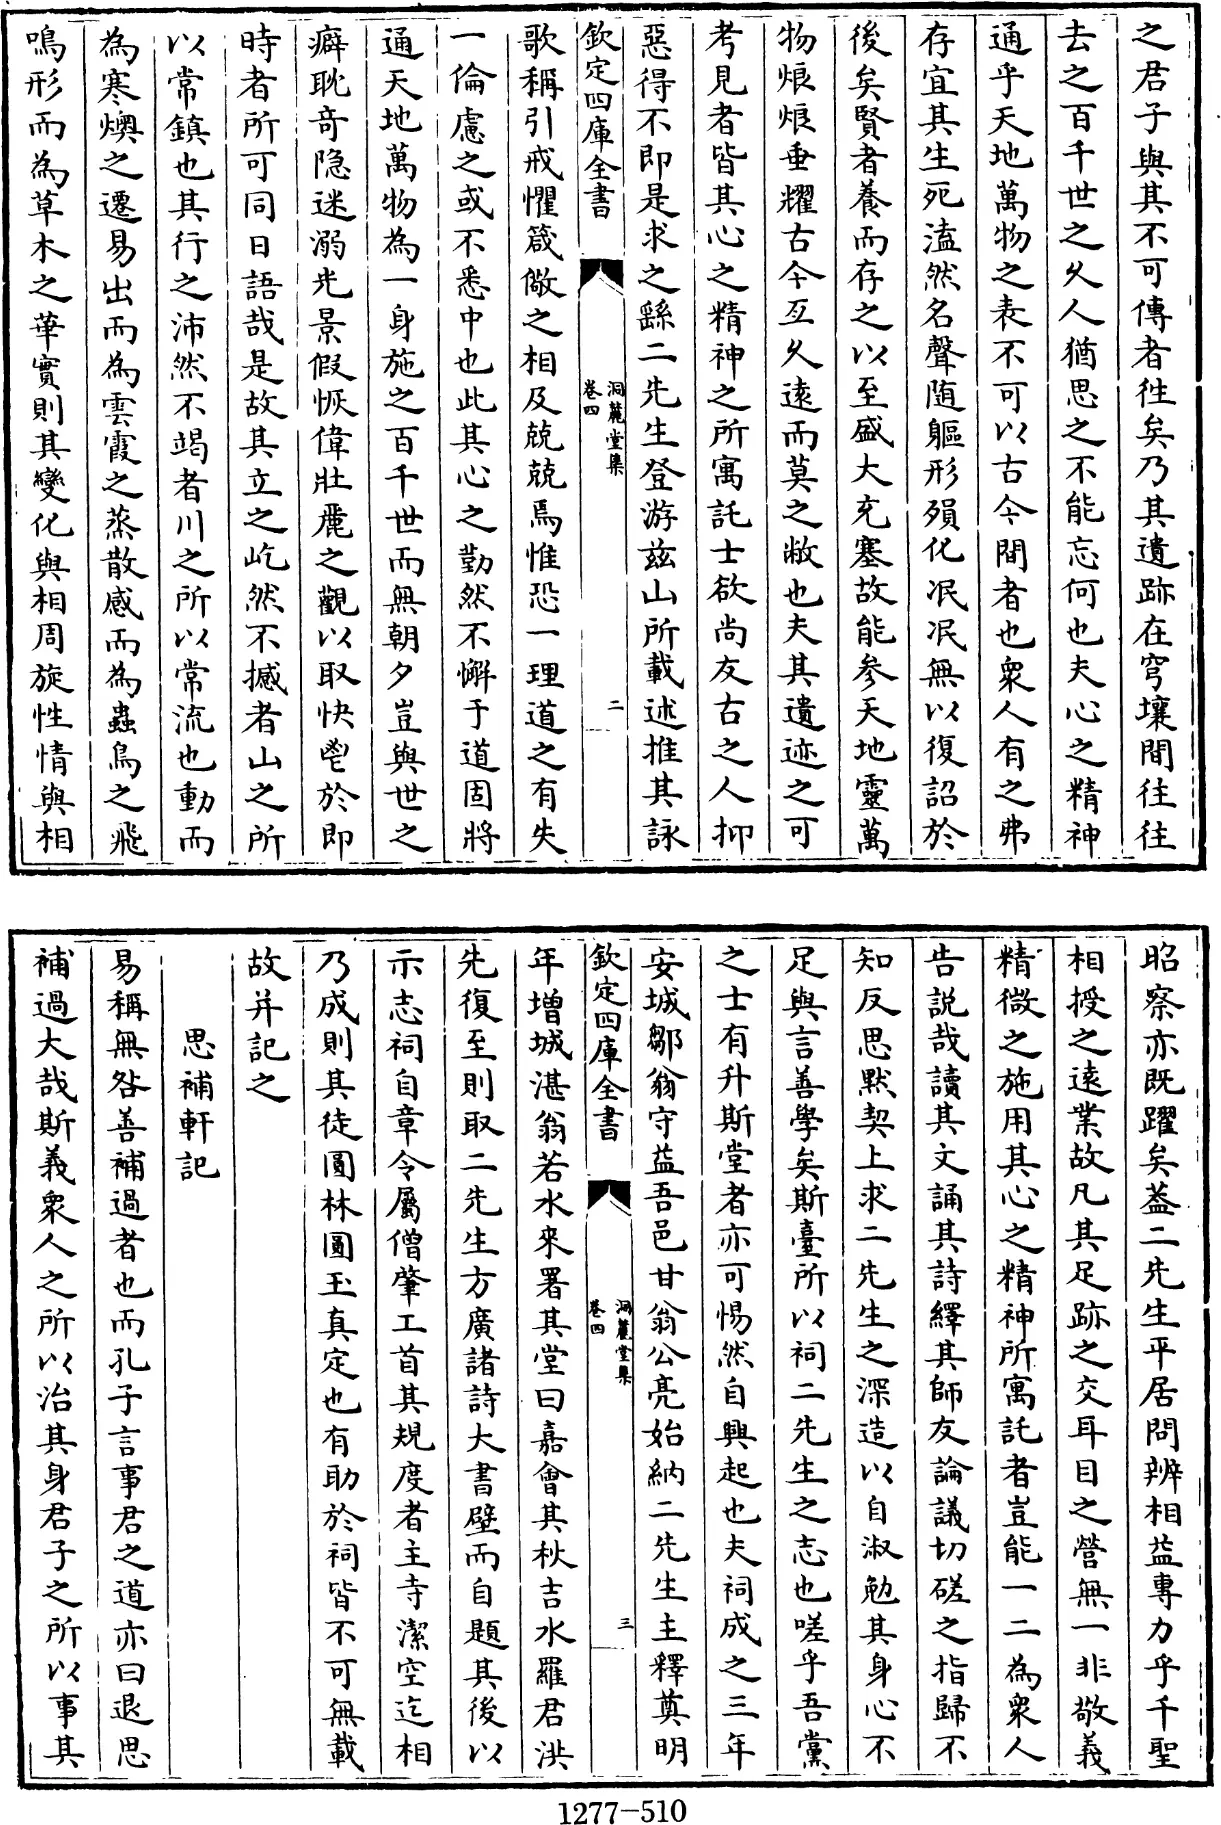 之君子與其不可傳者徃矣乃其遺跡在穹壤間往往
去之百千世之乆人猶思之不能忘何也夫心之精神
通乎天地萬物之表不可以古今間者也衆人有之弗
存宜其生死溘然名聲随軀形殞化冺冺無以復詔於
後矣賢者養而存之以至盛大充塞故能參天地靈萬
物烺烺垂耀古今亙乆逺而莫之敝也夫其遺迹之可
考見者皆其心之精神之所寓託士欲尚友古之人抑
惡得不即是求之繇二先生登游兹山所載述推其詠
欽定四庫全書
洞麓堂集
卷四
二
歌稱引戒懼箴儆之相及兢兢焉惟恐一理道之有失
一倫慮之或不悉中也此其心之勤然不懈于道固將
通天地萬物為一身施之百千世而無朝夕豈與世之
癖耽奇隐迷溺光景假恢偉壯麗之觀以取快鬯於即
時者所可同日語哉是故其立之屹然不撼者山之所
以常鎮也其行之沛然不竭者川之所以常流也動而
為寒燠之遷易出而為雲霞之蒸散感而為蟲鳥之飛
鳴形而為草木之華實則其變化與相周旋性情與相
昭察亦既躍矣葢二先生平居問辨相益專力乎千聖
相授之遠業故凡其足跡之交耳目之營無一非敬義
精微之施用其心之精神所寓託者豈能一二為衆人
告説哉讀其文誦其詩繹其師友論議切磋之指歸不
知反思默契上求二先生之深造以自淑勉其身心不
足與言善學矣斯臺所以祠二先生之志也嗟乎吾黨
之士有升斯堂者亦可惕然自興起也夫祠成之三年
安城鄒翁守益吾邑甘翁公亮始納二先生主釋奠明
欽定四庫全書
洞麓堂集
卷四
三
年增城湛翁若水來署其堂曰嘉會其秋吉水羅君洪
先復至則取二先生方廣諸詩大書壁而自題其後以
示志祠自章令屬僧肇工首其規度者主寺潔空迄相
乃成則其徒圓林圓玉真定也有助於祠皆不可無載
故并記之
思補軒記
易稱無咎善補過者也而孔子言事君之道亦曰退思
補過大哉斯義衆人之所以治其身君子之所以事其
1277-510